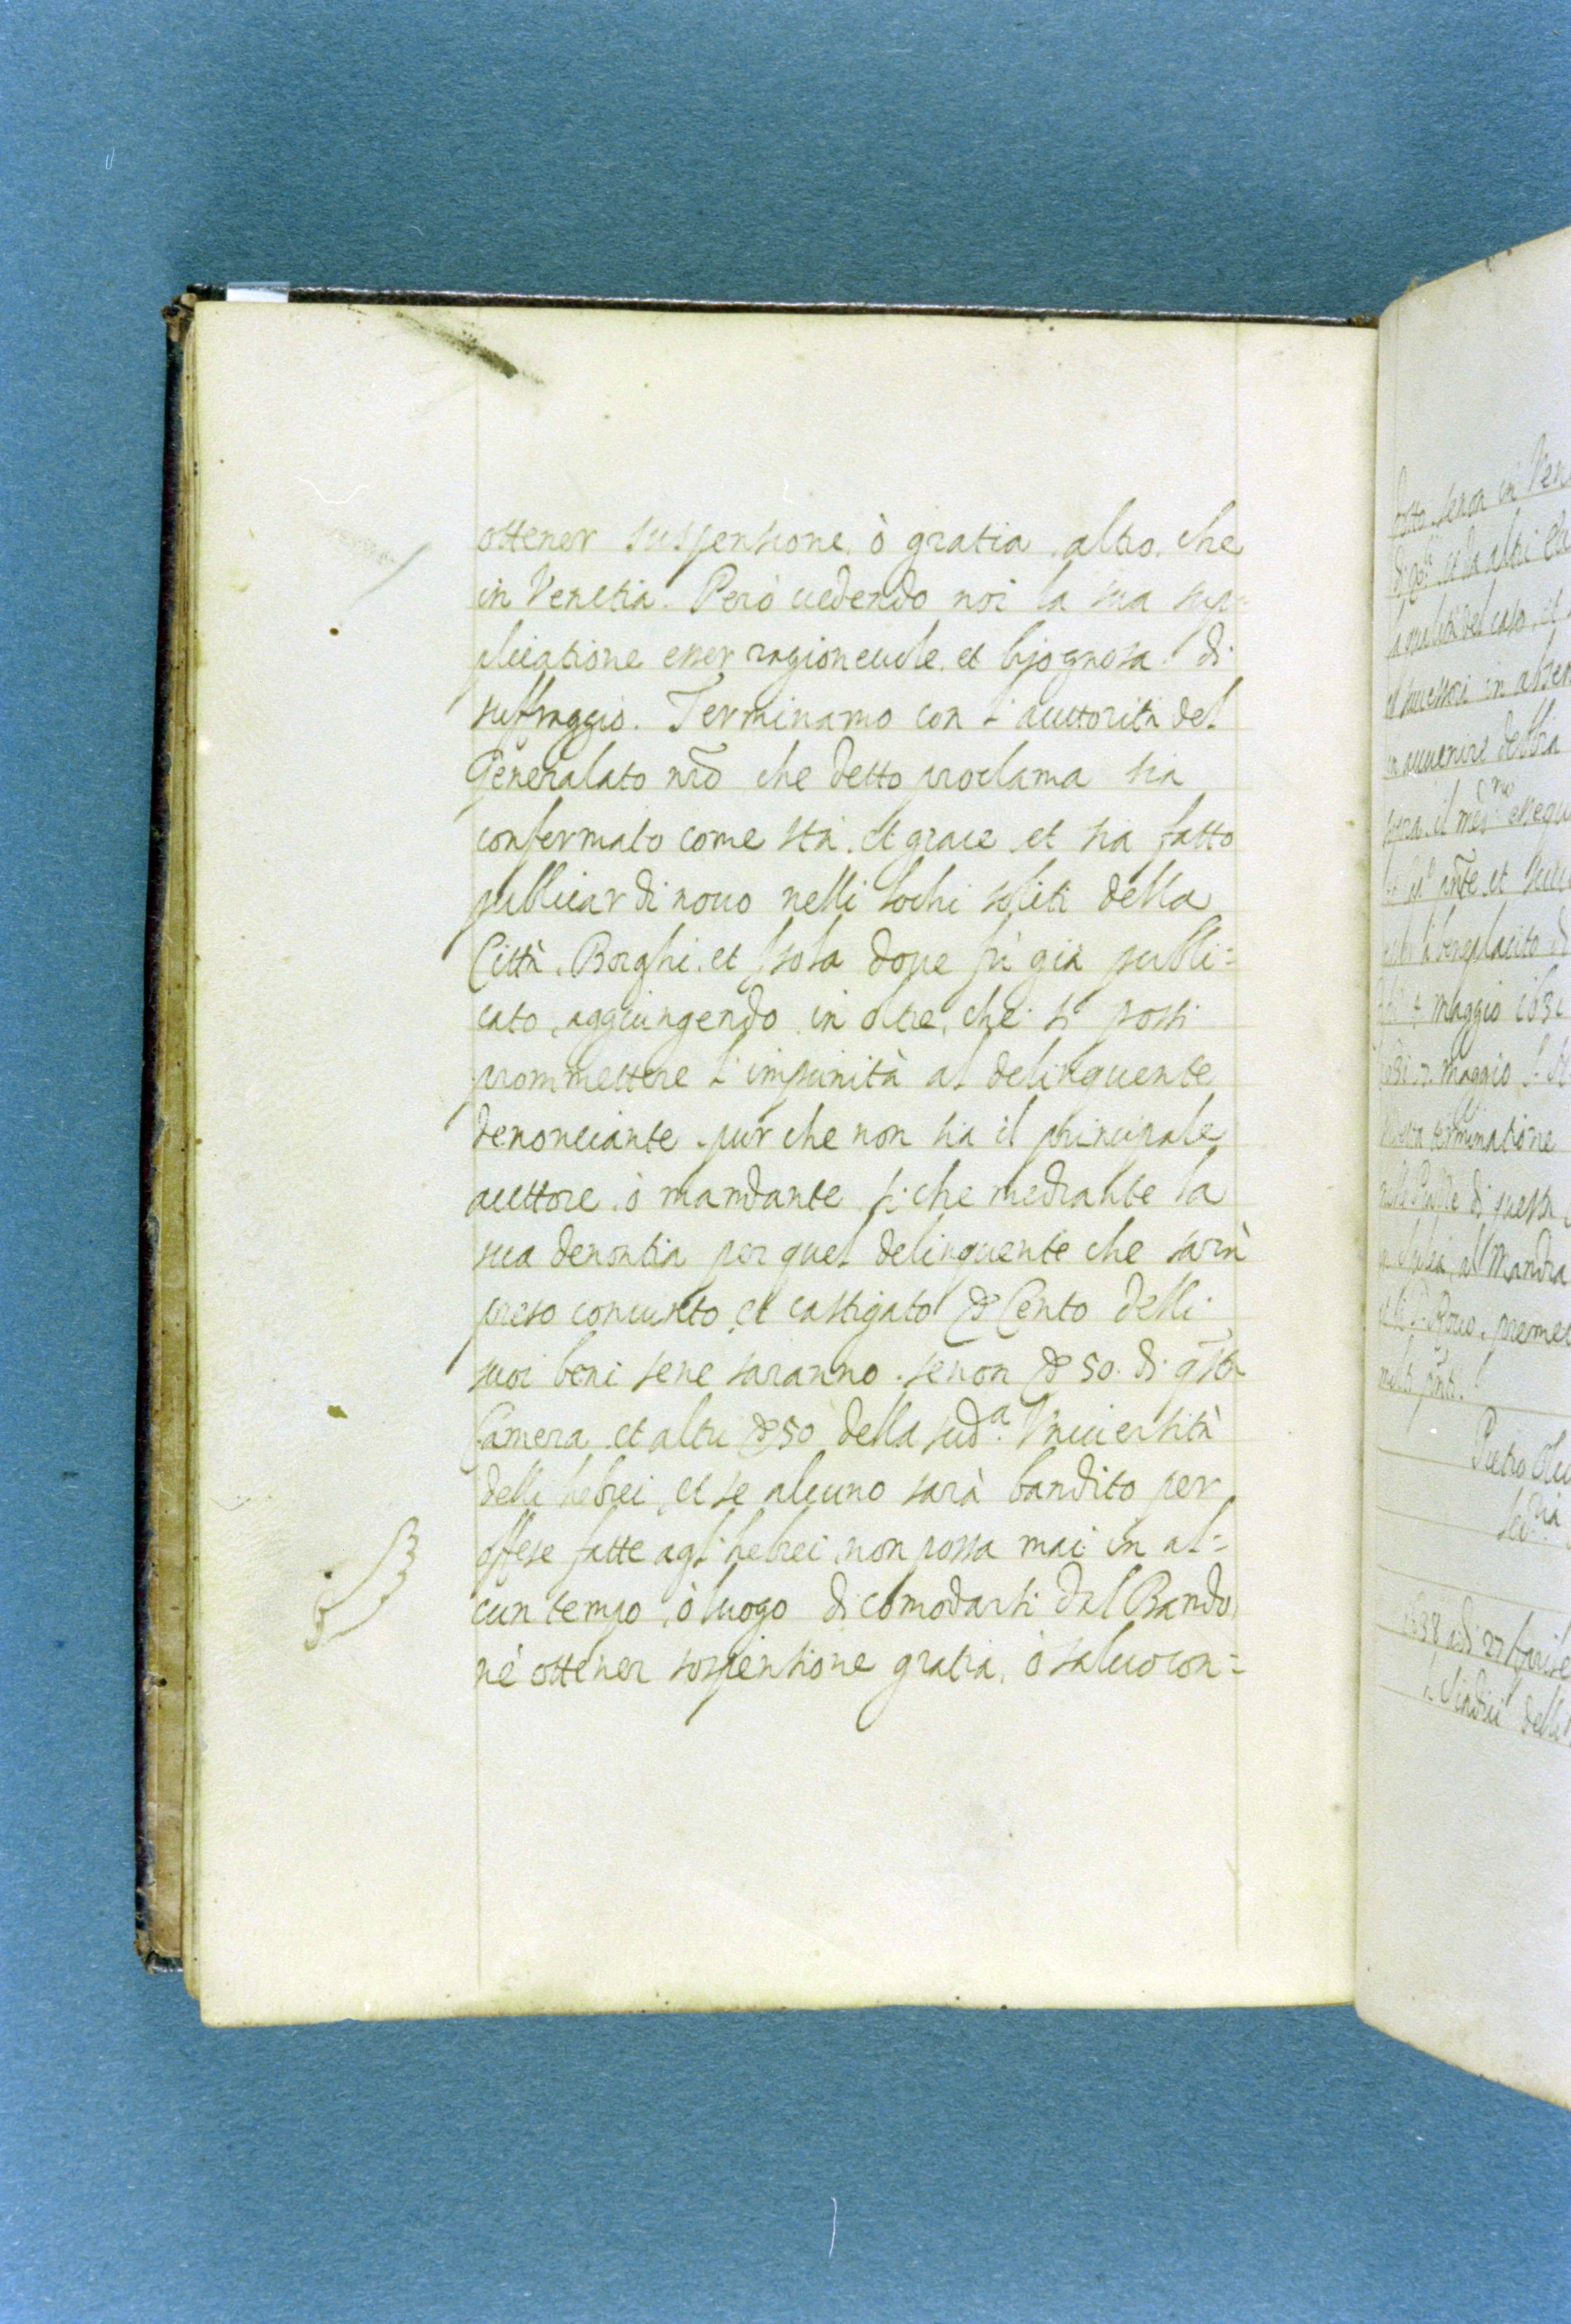 ottener suspensione, ò gratia, altro, che
in Venetia. Però uedendo noi la sua sup=
plicatione esser ragioneuole, et bisognosa di
suffraggio. Terminamo con l'auttorità del
Generalato nrõ che detto proclama sia
confermato come stà, et grace, et sia fatto
publicar di nouo nelli lochi soliti della
Città, Borghi, et Isola doue fù già publi=
cato, aggiungendo in oltre, che si possi
prommettere l'impunità al delinquente
denonciante, pur che non sia il principale
auttore, ò mandante, si che mediante la
sua denontia per quel delinquente che sarà
preso conuinto, et castigato Cento delli
suoi beni se ne saranno, se non 50. di q̃sta
Camera, et altri 50 della sud.a Vniuersità
delli hebrei, et se alcuno sarà bandito per
offese fatte agl'hebrei, non possa mai in al=
cun tempo, ò luogo di comodarsi dal Bando,
nè ottener sospensione gratia, ò saluocon=
in Ven
et successi in absen
in auuenire debbia
maggio
maggio
terminatione
di questa
Pietro
1638 adi 27 Aprile
Sindici delli